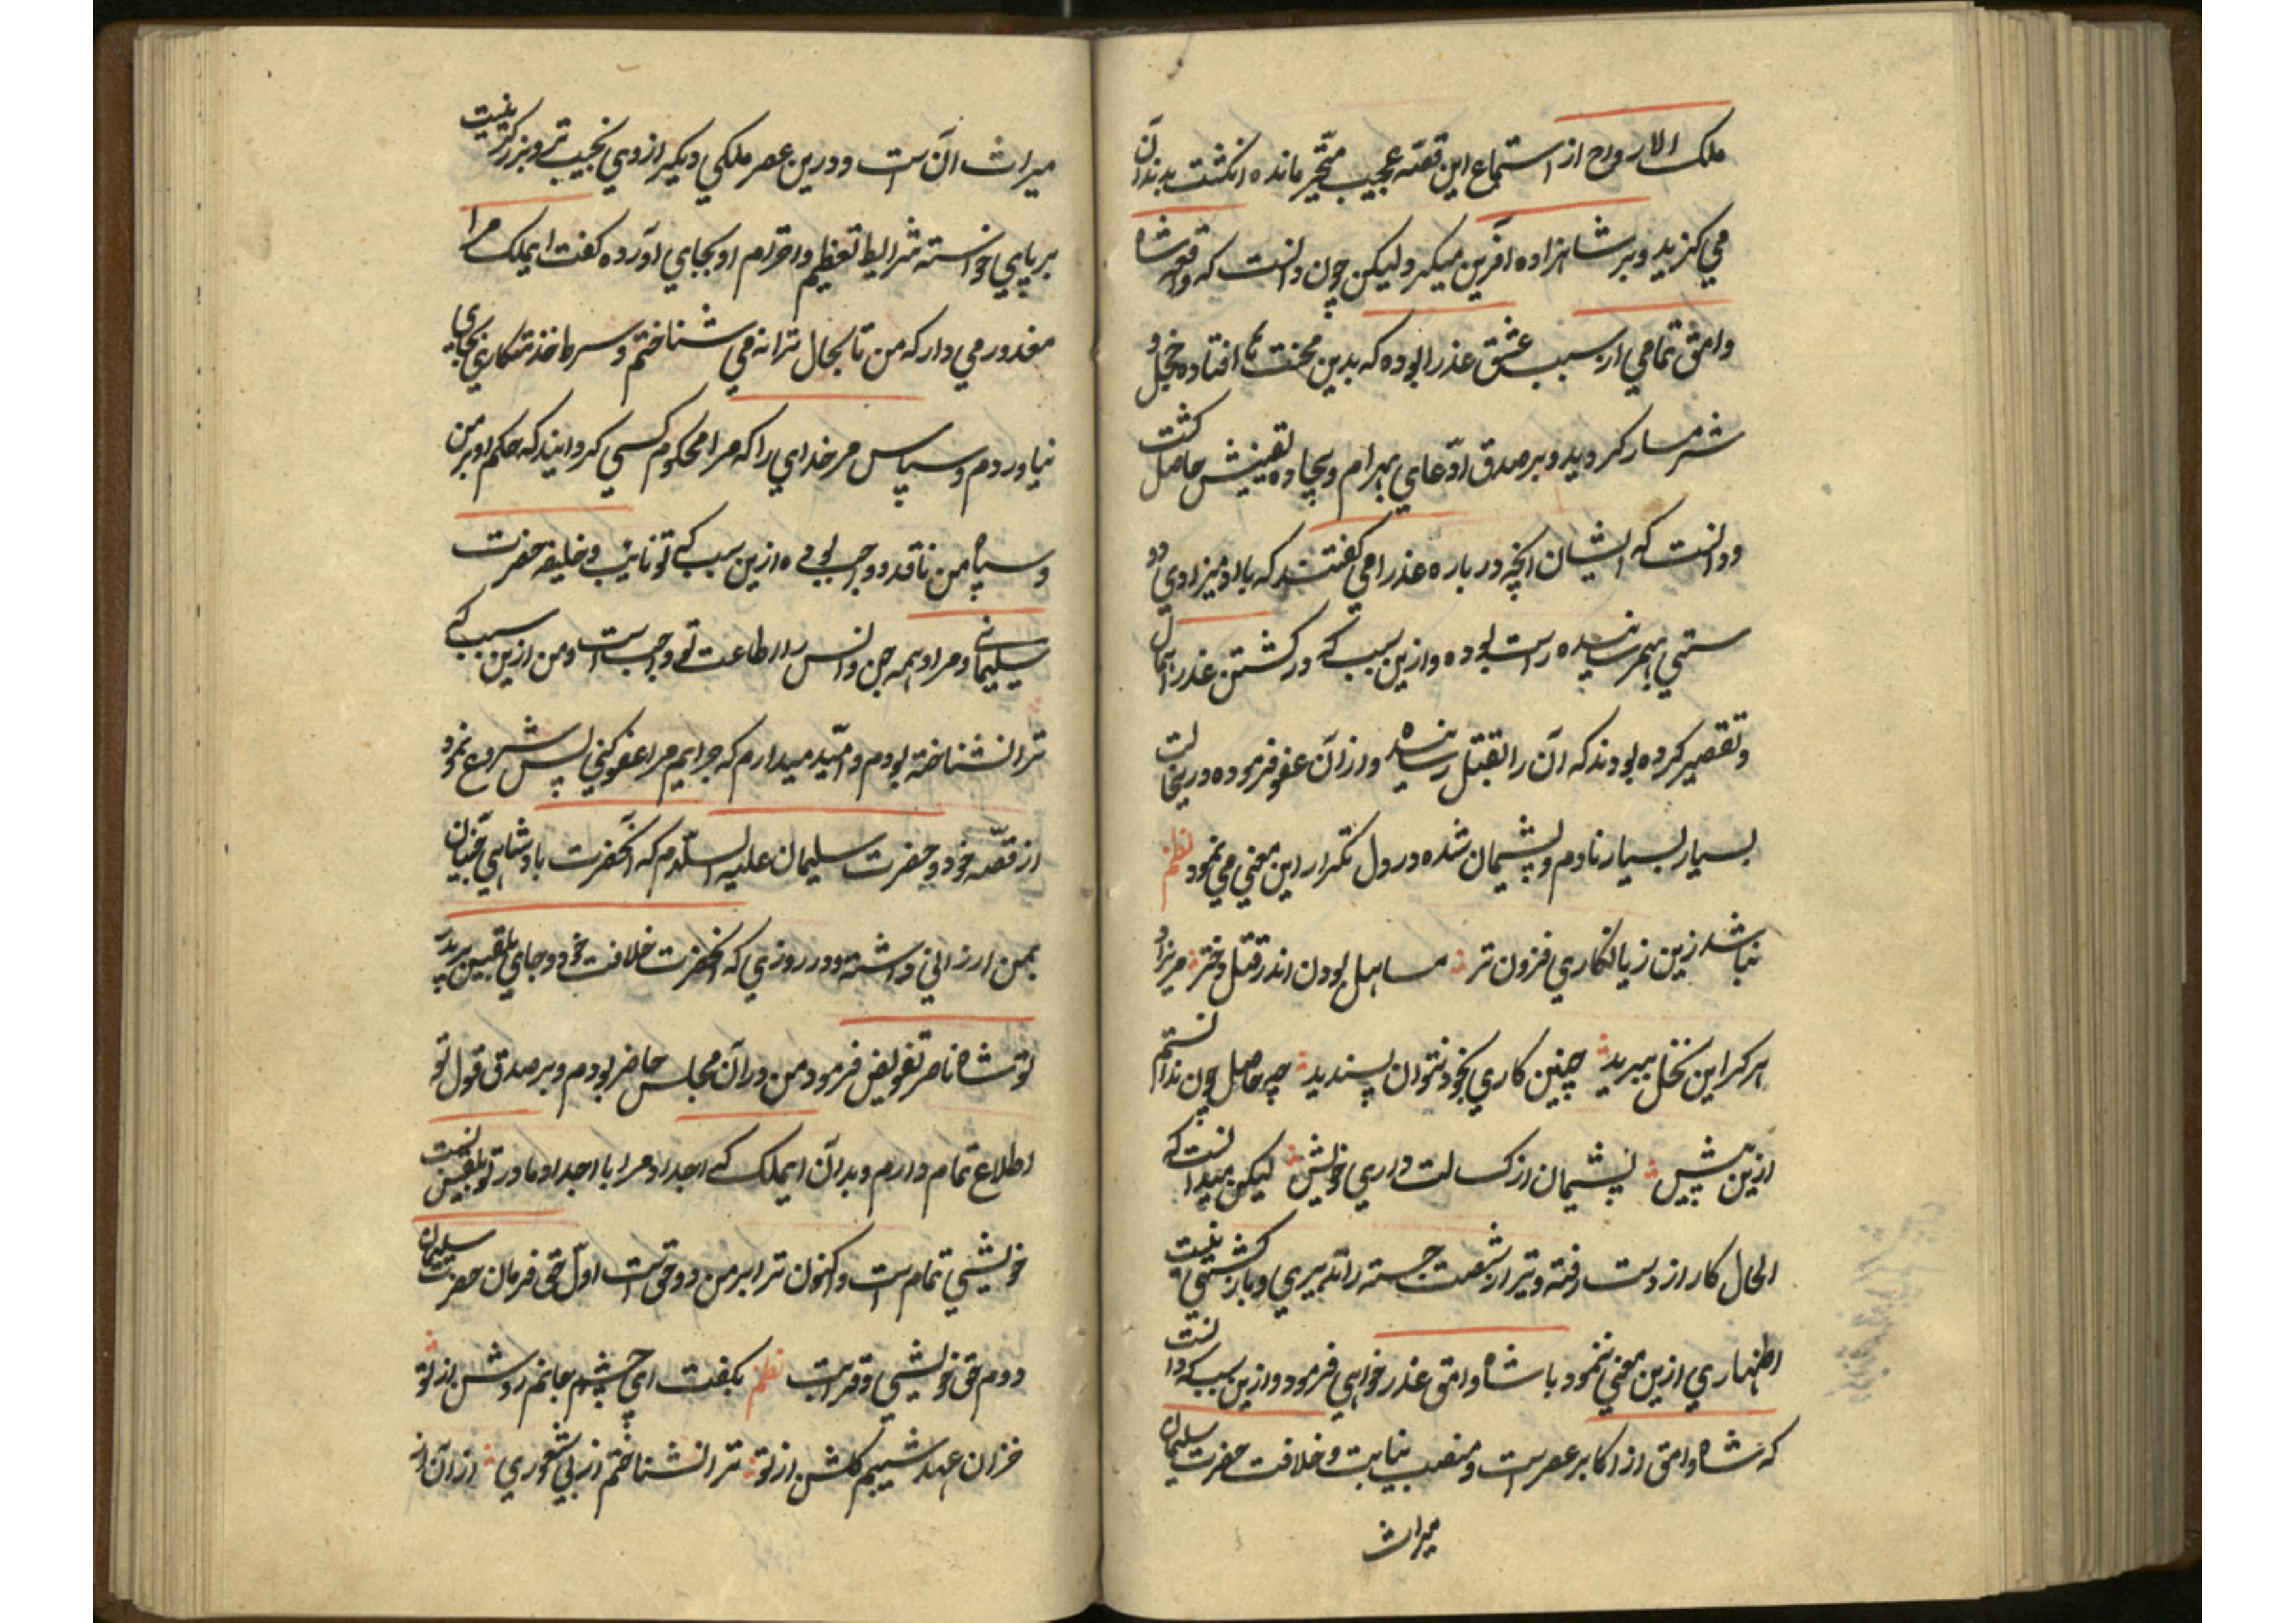 ملک الارواح از استماع این قصّه عجیب متحّیر مانده انکشت بدندان
می کزید و بر شاهزاده آفرین میکرد ولیکن چون دانست که واقعه شاه
وامق تمامی از سبب عشق عذرا بوده که بدین محنت ها افتاده خجل و
شرمسار کردید و بر صدق ادّعای بهرام و یقینش حاصل کشت
و دانست که ایشان انچه در باره عذرا می کفتند که با او میزادی و
ستی بهم رسانیده راست بوده و ازین سبب که در کشتن عذرا اهمال
و تقصیر کرده بودند که آن را بقتل رسانیده و از آن عفو فرموده در
بسیار بسیار نادم و پشیمان شده در دل تکرار این معنی می نمود نظم
نباشد زین زیانکاری فزون تر مساهل بودن اندر قتل دختر
هر کرا این نخل ببرید چنین کاری بخود نتوان پسندید چه حاصل چون ندانستم
ازین پیش پشیمان از کسالت داری خویش لیکن میدانست که
الحال کار از دست رفته و تیر از شصت جسته را تدبیری و باز کشتی نیست
اظهاری ازین معنی ننمود با شاه وامق عذر خواهی فرمود و ازین سبب که دانست
که شاه وامق از اکابر عصر است و منصب نیابت و خلافت حضرت سلیمان
میراث
میراث آن است و درین عصر ملکی دیکر از وی نجیب تر و بزرکتر نیست
بر پای خواسته شرایط تعظیم و احترام او بجای آورده کفت ایملک مرا
معذور می دار که من تا بحال ترا نه می شناختم و بجای
نیاوردم و سپاس مر خدای را که مرا محکوم کسی کردانید که حکم او بر من
و سپاه من نافد و واجب بوده ازین سبب که تو نایب و خلیفه حضرت
سلیمانی و مر او همه جن و انس را اطاعت تو واجب است و من ازین سبب که
ترا نشناخته بودم و امّید میدارم که جرایم مرا عفو کنی پس شروع نمود
از قصّه خود و حضرت سلیمان علیه السلّام که آنحضرت بادشاهی جنّیان
بمن ارزانی داشته و در روزی که آنحضرت خلافت خود و جای بلقیس بپدر
تو شاه ناصر تفویض فرمود من در آن مجلس حاضر بودم و بر صدق قول تو
اطلاع تمام دارم و بدان ایملک که اجداد مرا با اجداد مادر تو بلقیس نسبت
خویشی تمام است و اکنون ترا بر من دو حق است اوّل حق فرمان حضرت سلیمان
دوم حق خویشی و قرابت نظم بکفت ای چشم جانم روشن از تو
خزان عهد شیبم کلشن از تو ترا نشناختم از بی شعوری از آن